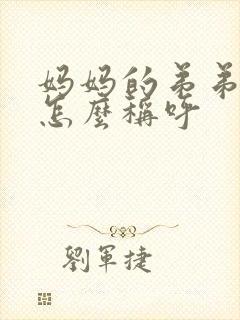 妈妈的弟弟
怎麼稱呼
劉軍捷